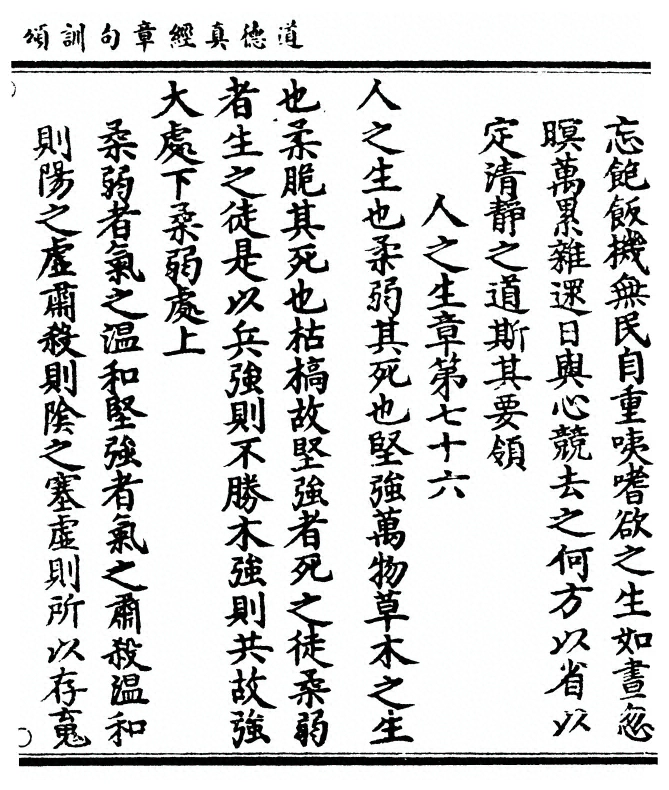 道德真經章句訓頌
忘飽飯機無民自重咦嗜欲之生如晝忽
暝萬累雜遝日與心競去之何方以省以
定清靜之道斯其要領
人之生章第七十六
人之生也柔弱其死也堅強萬物草木之生
也柔脆其死也枯槁故堅強者死之徒柔弱
者生之徒是以兵強則不勝木強則共故強
大處下柔弱處上
柔弱者氣之温和堅強者氣之肅殺温和
則陽之虛肅殺則陰之塞虛則所以存䰟